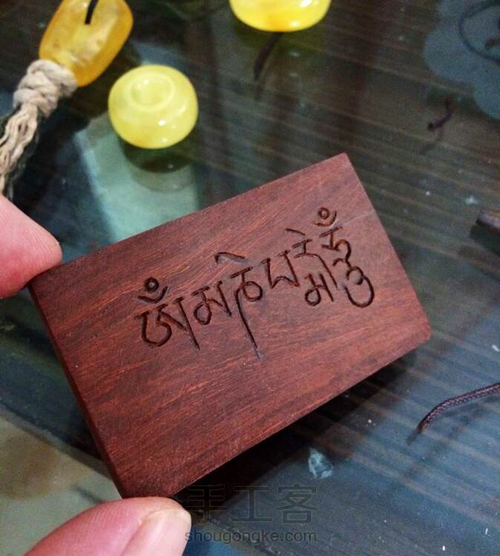 ཨོཾ མ ཎི པ དྨེ ཧཱུྃ
手工客
shougongke.com